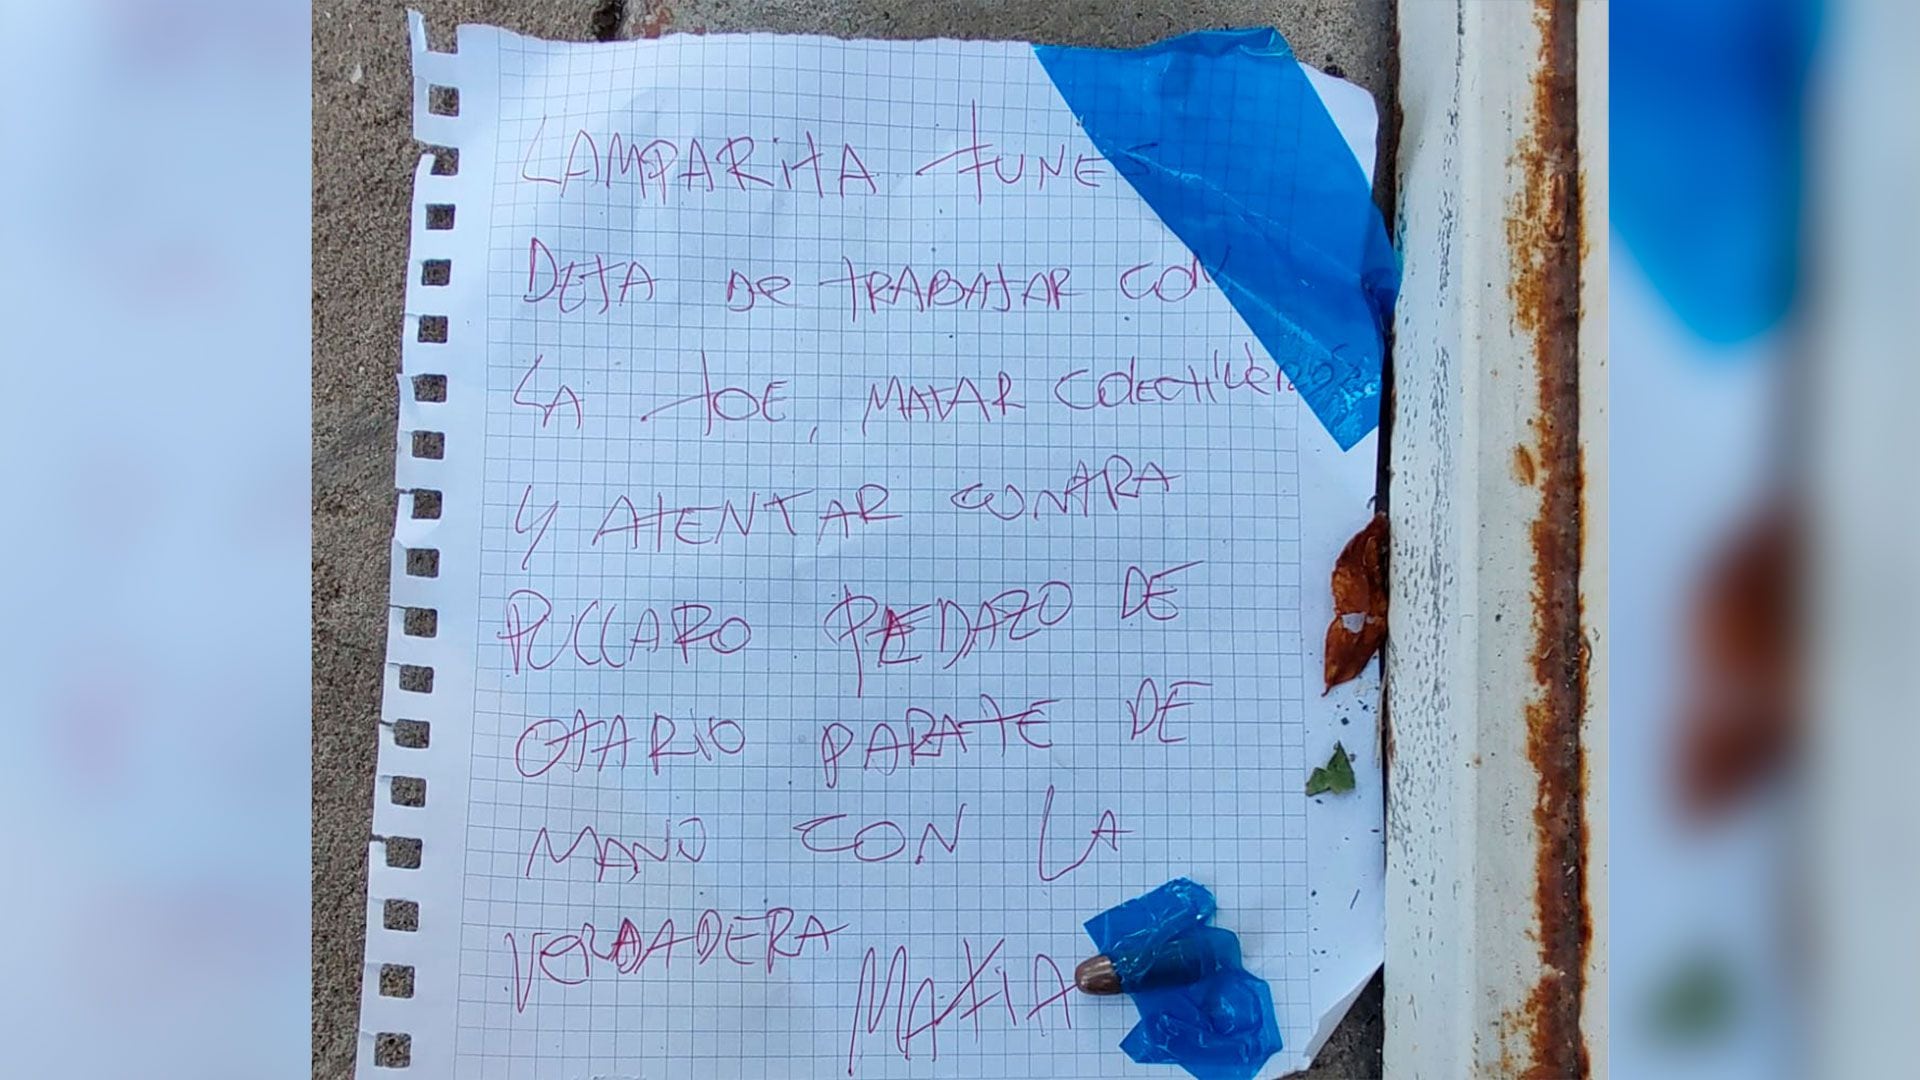 LAMPARITA FUNES
DEJA De TRABAJAR CON
LA JOE, MATAR COLECTIVEROS
Y ATENTAR CONTRA
PUCCARO PEDAZO DE
OTARIO PARATE DE
MANO CON LA
VERDADERA MAFIA